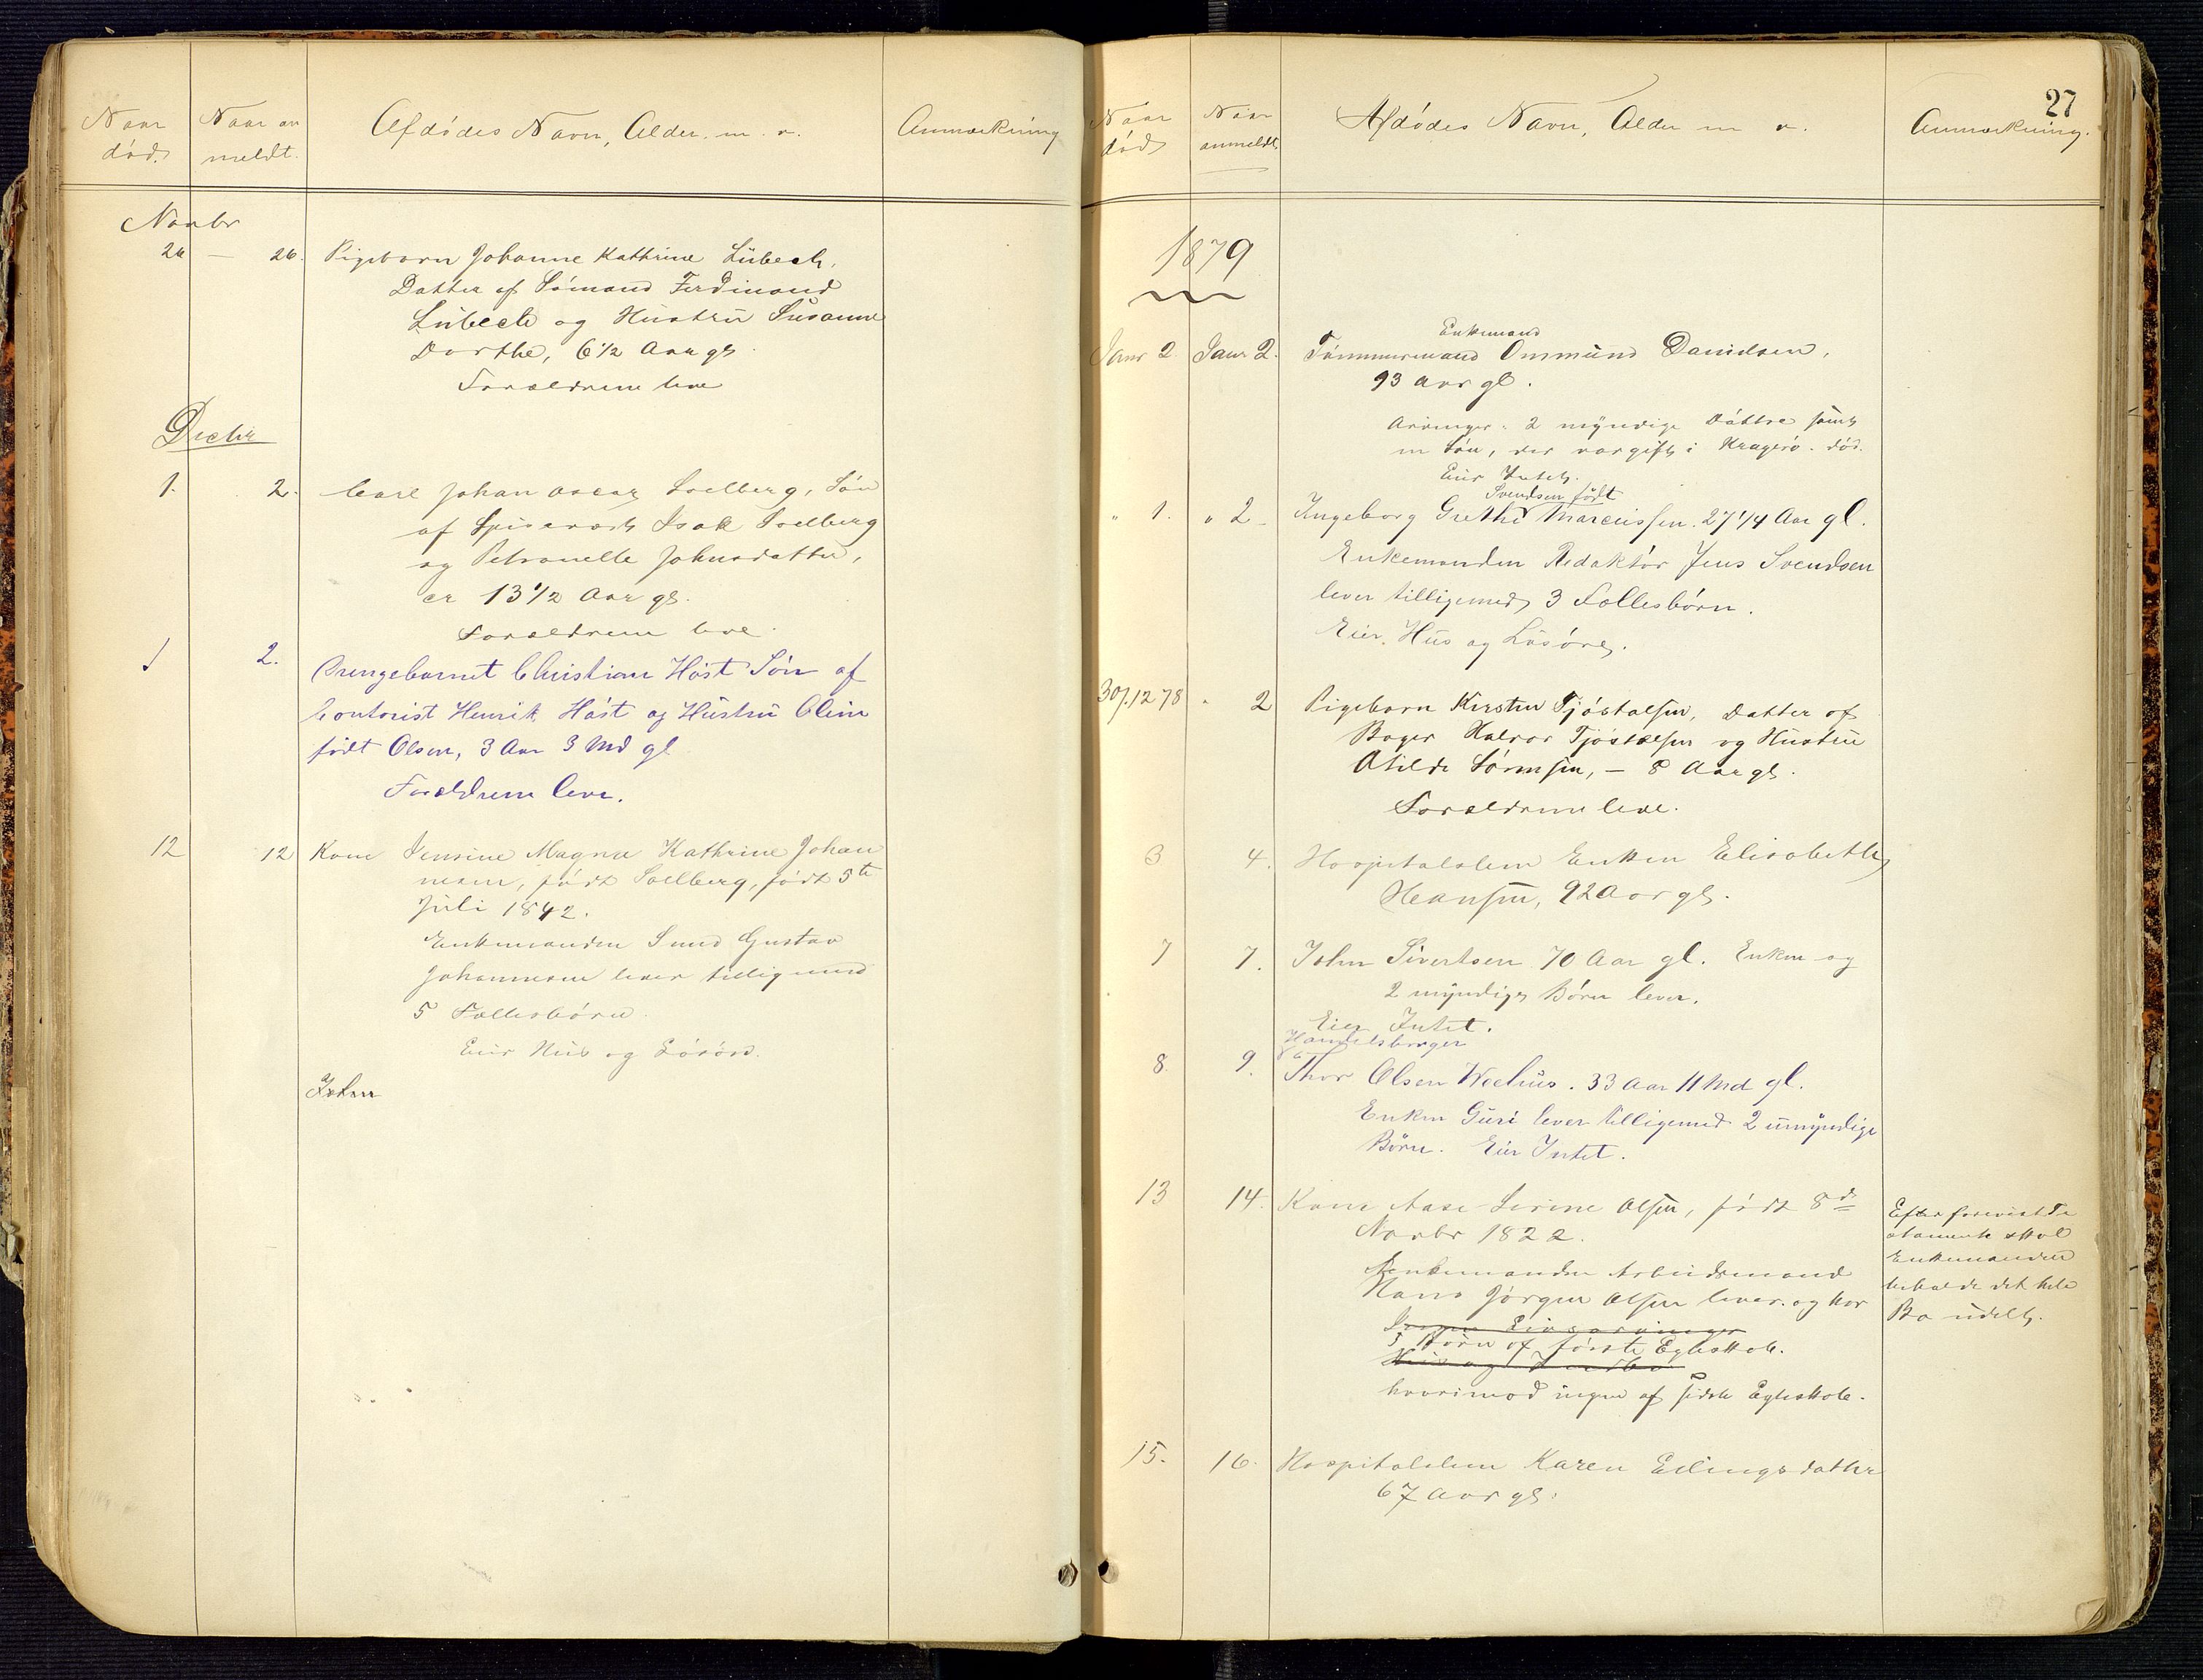 Naar død.
Naar an meldt.
Afdødes Navn, Alder m. v.
Anmærkning
Novbr
26 — 26. Pigebarn Johanne Kathrine Lübeck,
Datter af Sømand Ferdinand
Lübeck og Hustru Susanne
Dorthe, 6 1/2 Aar gl.
Forældrene leve
Decbr
1. 2. Carl Johan Oscar Soelberg, Søn
af Isak Soelberg
og Petronelle Johnsdatter,
er 13 1/2 Aar gl.
Forældrene leve.
1 2. Drengebarnet Christian Høst Søn af
Contorist Henrik Høst og Hustru Oline
født Olsen, 3 Aar 3 Md gl
Forældrene leve.
12 12 Kone Jensine Magna Kathrine Johan
nesen, født Soelberg, født 5te
Juli 1842.
Enkemanden Smed Gustav
Johannesen lever tilligemed
5 Fællesbørn.
Eier Hus og Løsøre.
John
27
Naar død
Naar anmeldt.
Afdødes Navn, Alder m v.
Anmærkning.
1879
Enkemand
Janr 2 Janr 2. Tømmermand Ommund Davidsen,
93 Aar gl.
Arvinger: 2 myndige Døttre samt
en Søn, der var gift i Kragerø. død.
Eier Intet.
Svendsen født
" 1. " 2 Ingeborg Grethe Marcussen. 27 1/4 Aar gl.
Enkemanden Redaktør Jens Svendsen
lever tilligemed 3 Fællesbørn.
Eier Hus og Løsøre.
30/12 78 " 2 Pigebarn Kirsten Tjøstolsen, Datter af
Bager Halvor Tjøstolsen og Hustru
Atilde Sørensen, — 8 Aar gl.
Forældrene leve.
3 4. Hospitalslem Enken Elisabeth
Hansen, 92 Aar gl.
7 7. John Sivertsen 70 Aar gl. Enken og
2 myndige Børn lever.
Eier Intet.
Handelsborger
8 9. Thor Olsen Weehus. 33 Aar 11 Md gl.
Enken Guri lever tilligemed 2 umyndige
Børn. Eier Intet.
13 14. Kone Aase Serine Olsen, født 8de
Novbr 1822.
Enkemanden Arbeidsmand
Hans Jørgen Olsen lever og har
Ingen Livsarvinger
3 Børn af første Egteskab.
Hus og Indbo
hvorimod ingen af sidste Egteskab.
Efter forevist Te
stamente skal
Enkemanden
beholde det hele
Bo udelt.
15. 16. Hospitalslem Karen Erlingsdatter
67 Aar gl.